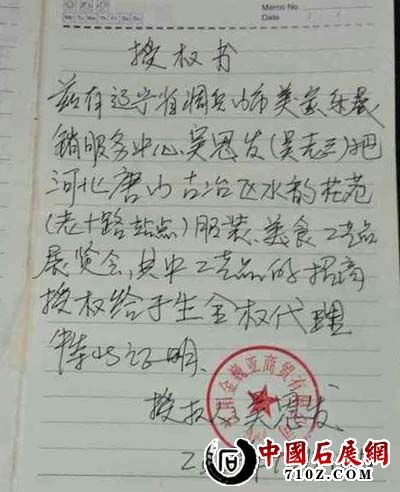 Memo No.
Mo Tu We Th Fr Sa Su
Date
授权书
兹有辽宁省调兵山市美家乐展
销服务中心吴恩发(吴老三)把
河北唐山古冶区水韵花苑
(老十路站点)服装、美食、工艺品
展览会,其中工艺品的招商
授权给于生全权代理
特此证明.
授权人吴恩发
金巍亚商贸有
2
中国石展网
710Z.COM